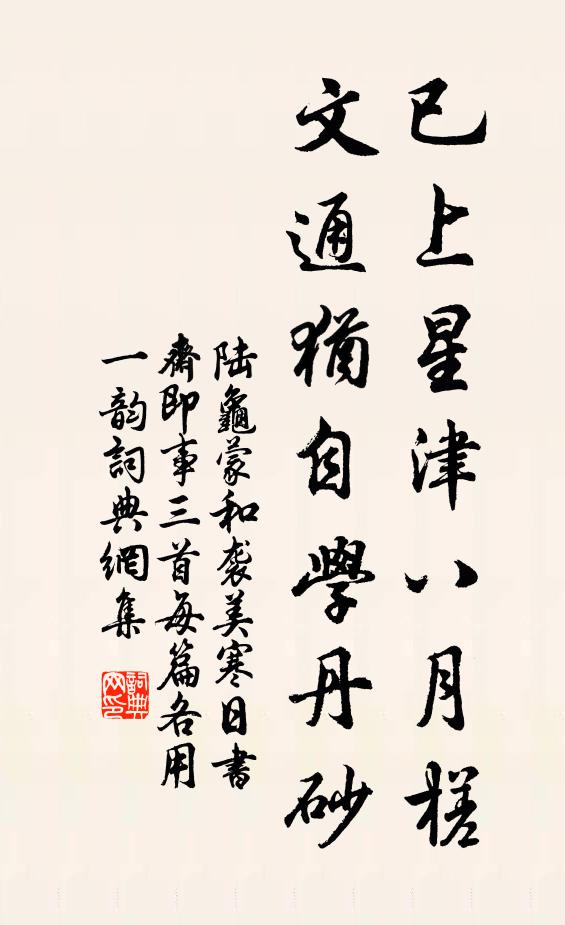 已上星津八月槎
文通猶自學丹砂
陸龜蒙和袭美寒日書
齋即事三首每篇各用
一韵詞典網集
詞典网印